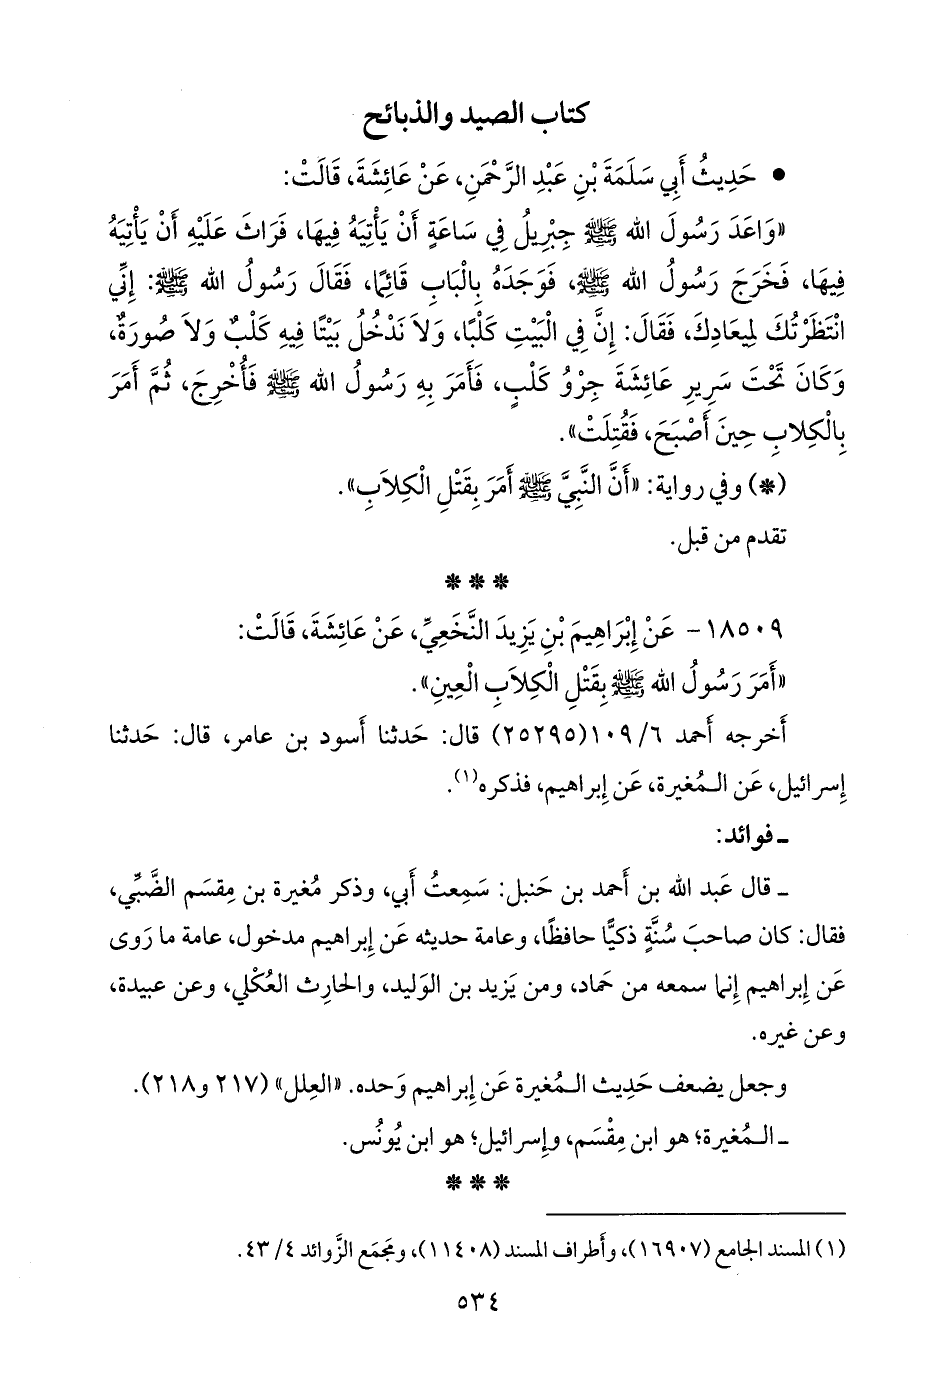 كتاب الصيد والذبائح
• حَدِيثُ أَبِي سَلَمَةَ بْنِ عَبْدِ الرَّحْمَنِ، عَنْ عَائِشَةَ، قَالَتْ:
«وَاعَدَ رَسُولَ الله ﷺ جِبْرِيلُ فِي سَاعَةٍ أَنْ يَأْتِيَهُ فِيهَا، فَرَاثَ عَلَيْهِ أَنْ يَأْتِيَهُ
فِيهَا، فَخَرَجَ رَسُولُ الله ﷺ، فَوَجَدَهُ بِالْبَابِ قَائِمًا، فَقَالَ رَسُولُ الله ﷺ: إِنِّي
انْتَظَرْتُكَ لِمِيعَادِكَ، فَقَالَ: إِنَّ فِي الْبَيْتِ كَلْبًا، وَلاَ نَدْخُلُ بَيْتًا فِيهِ كَلْبٌ وَلاَ صُورَةٌ،
وَكَانَ تَحْتَ سَرِيرِ عَائِشَةَ جِرْوُ كَلْبٍ، فَأَمَرَ بِهِ رَسُولُ الله ﷺ فَأُخْرِجَ، ثُمَّ أَمَرَ
بِالْكِلاَبِ حِينَ أَصْبَحَ، فَقُتِلَتْ».
(*) وفي رواية: «أَنَّ النَّبِيَّ ﷺ أَمَرَ بِقَتْلِ الْكِلاَبِ».
تقدم من قبل.
* * *
١٨٥٠٩- عَنْ إِبْرَاهِيمَ بْنِ يَزِيدَ النَّخَعِيِّ، عَنْ عَائِشَةَ، قَالَتْ:
«أَمَرَ رَسُولُ الله ﷺ بِقَتْلِ الْكِلاَبِ الْعِينِ».
أَخرجه أَحمد ٦/ ١٠٩ (٢٥٢٩٥) قال: حَدثنا أَسود بن عامر، قال: حَدثنا
إِسرائيل، عَن الـمُغيرة، عَن إِبراهيم، فذكره(١).
ـ فوائد:
ـ قال عَبد الله بن أَحمد بن حَنبل: سَمِعتُ أَبي، وذكر مُغيرة بن مِقسَم الضَّبِّي،
فقال: كان صاحبَ سُنَّةٍ ذكيًّا حافظًا، وعامة حديثه عَن إِبراهيم مدخول، عامة ما رَوى
عَن إِبراهيم إِنما سمعه من حَماد، ومن يَزيد بن الوَليد، والحارِث العُكْلي، وعن عبيدة،
وعن غيره.
وجعل يضعف حَدِيث الـمُغيرة عَن إِبراهيم وَحده. «العِلل» (٢١٧ و٢١٨).
ـ الـمُغيرة؛ هو ابن مِقْسَم، وإِسرائيل؛ هو ابن يُونُس.
* * *
(١) المسند الجامع (١٦٩٠٧)، وأَطراف المسند (١١٤٠٨)، ومجَمَع الزَّوائد ٤/ ٤٣.
٥٣٤